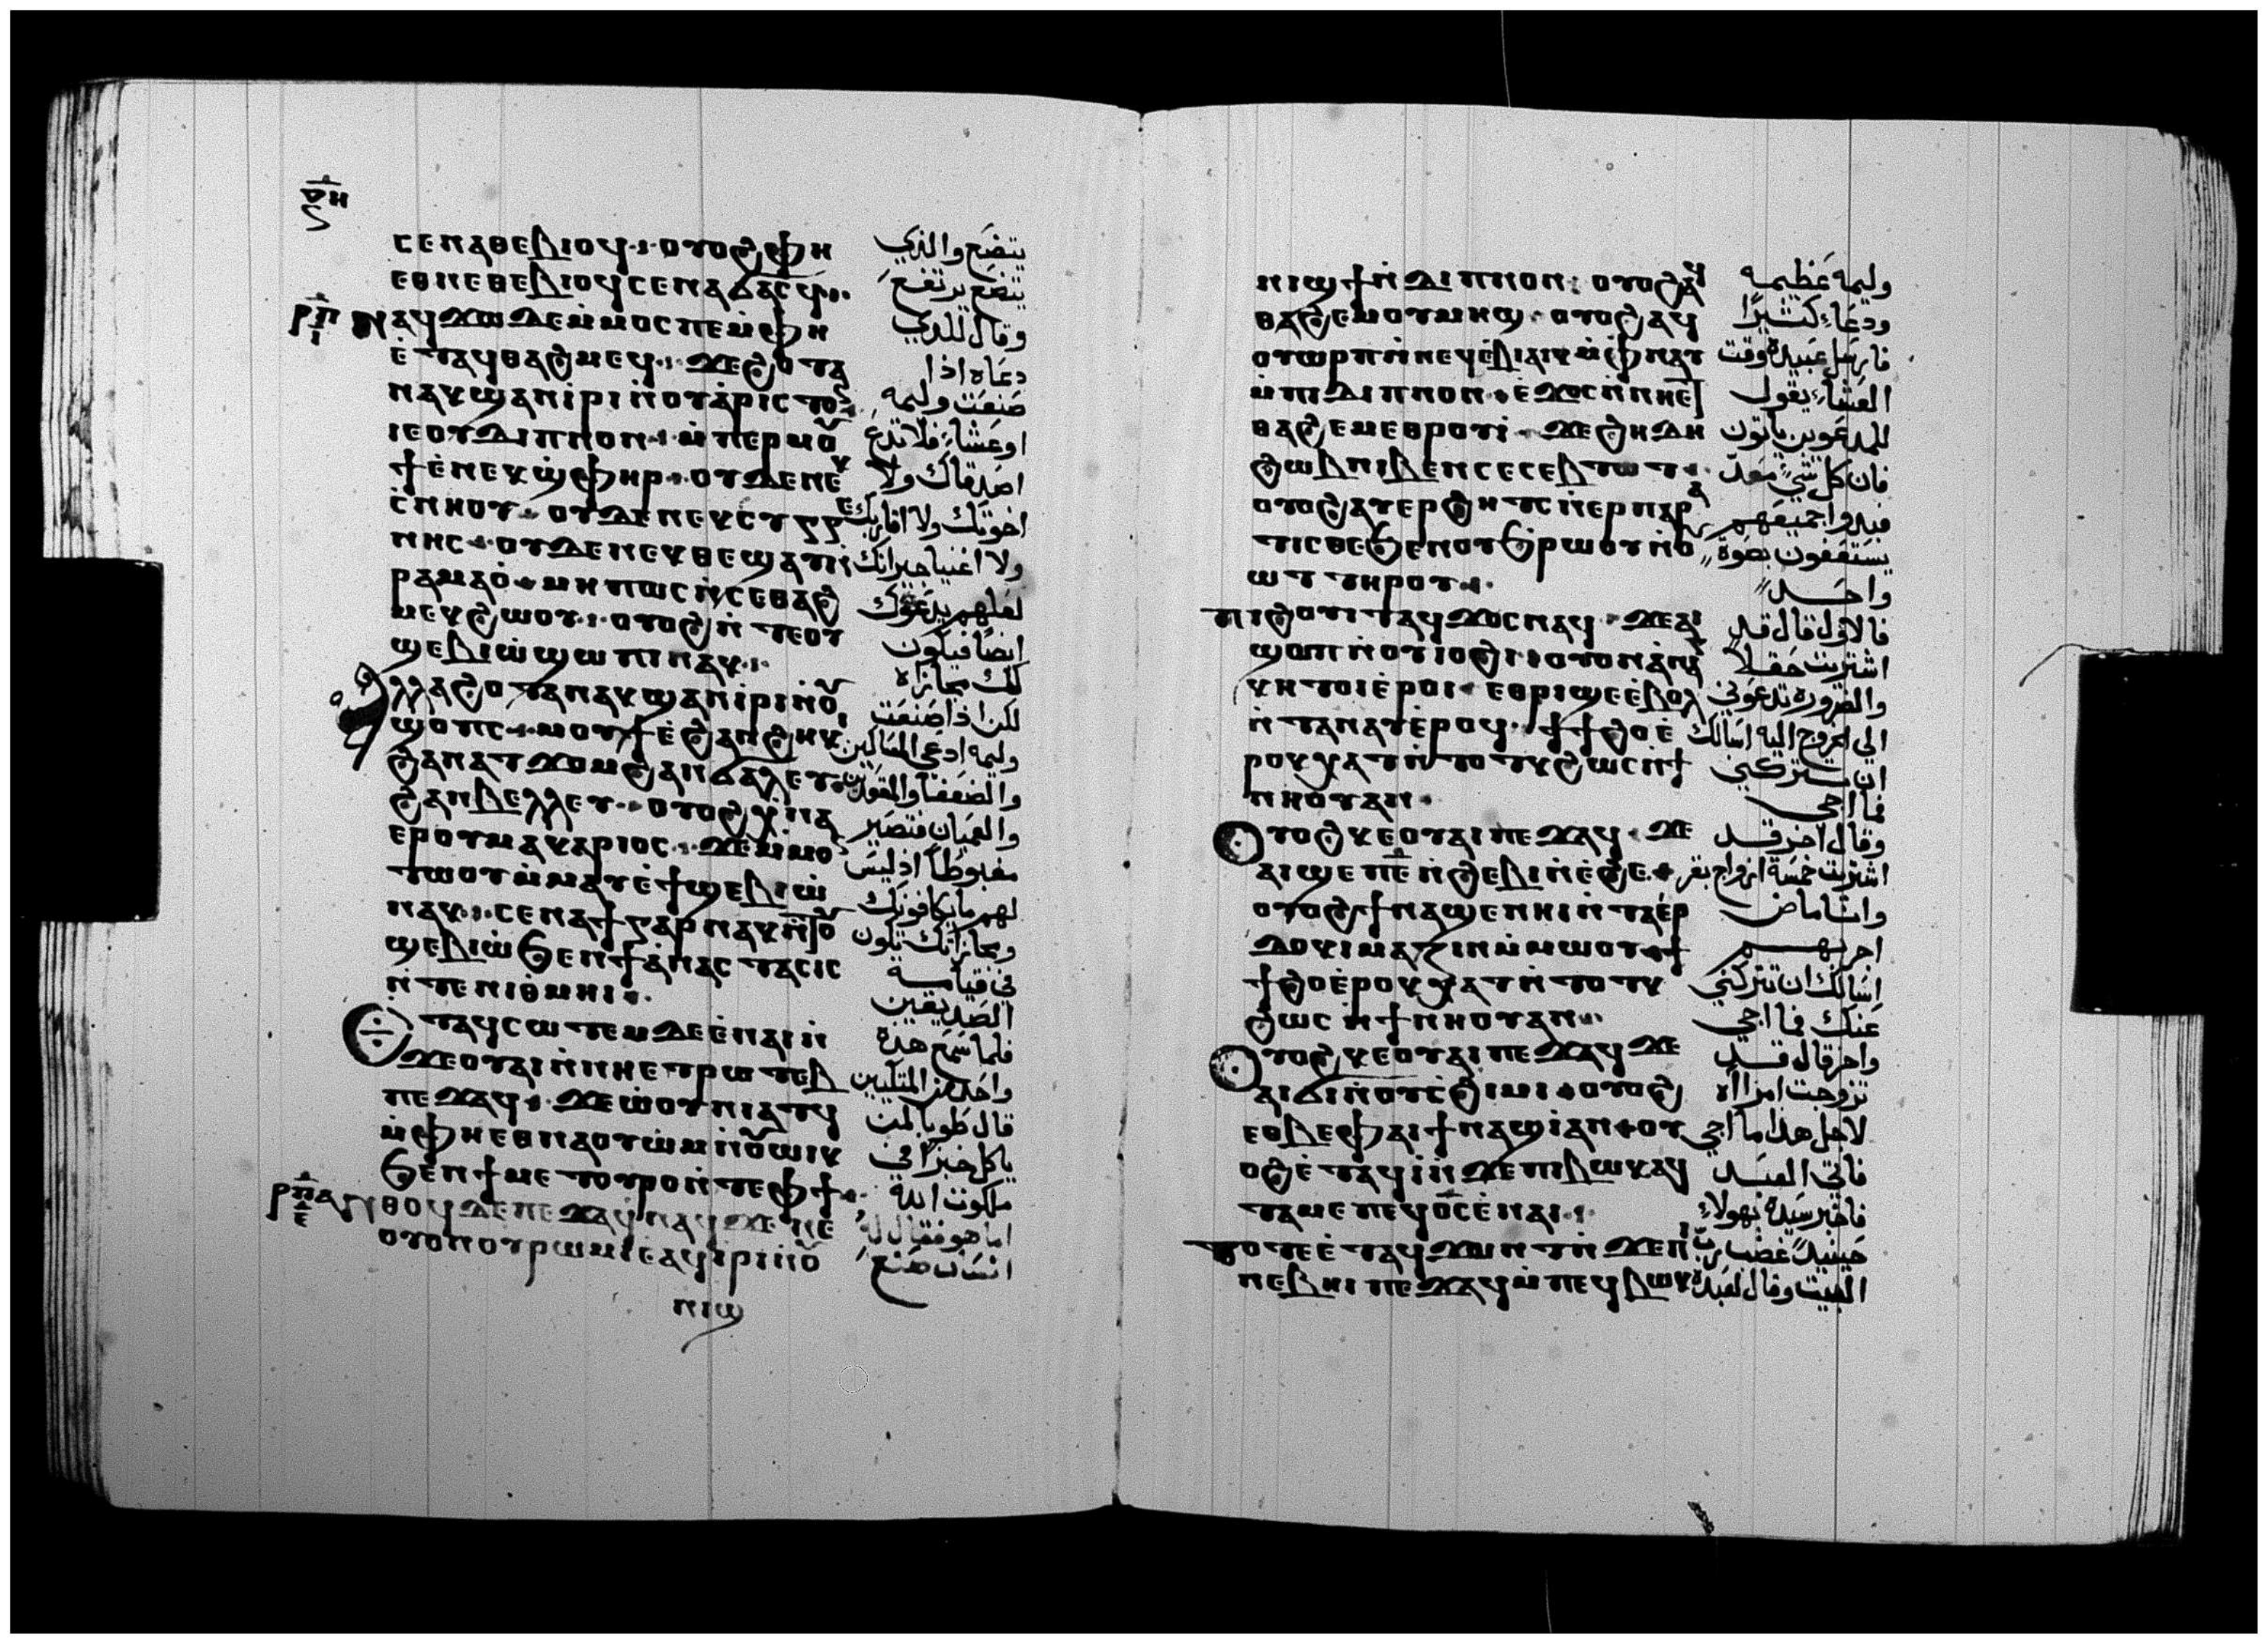 ⲥⲉⲛⲁⲑⲉⲃⲓⲟϥ · ⲟⲩⲟϩ ⲫⲏ
ⲉⲑⲛⲉⲑⲉⲃⲓⲟϥ ⲥⲉⲛⲁϭⲁⲥϥ
ⲣ̅ⲡ̅ ⲛⲁϥϫⲱ ⲇⲉ ⲙ̀ⲙⲟⲥ ⲡⲉ ⲙ̀ⲫⲏ
ⲉ̀ⲧⲁϥⲑⲁϩⲙⲉϥ · ϫⲉ ϩⲟⲧⲁ
ⲛⲁⲕϣⲁⲛⲓ̀ⲣⲓ ⲛ̀ⲟⲩⲁ̀ⲣⲓⲥⲧⲟⲛ
ⲓⲉ ⲟⲩⲇⲓⲡⲛⲟⲛ · ⲙ̀ⲡⲉⲣⲙⲟⲩ
ϯ ⲉ̀ⲛⲉⲕϣ̀ⲫⲏⲣ · ⲟⲩⲇⲉ ⲛⲉⲕ
ⲥ̀ⲛⲏⲟⲩ · ⲟⲩⲇⲉ ⲛⲉⲕⲥⲩⲅⲅⲉ
ⲛⲏⲥ · ⲟⲩⲇⲉ ⲛⲉⲕⲑⲉϣⲁⲩ ⲛ̀
ⲣⲁⲙⲁⲟ̀ · ⲙⲏⲡⲱⲥ ⲛ̀ⲥⲉⲑⲁϩ
ⲙⲉⲕ ϩⲱⲟⲩ · ⲟⲩⲟϩ ⲛ̀ⲧⲉⲟⲩ
ϣⲉⲃⲓⲱ̀ ϣⲱⲡⲓ ⲛⲁⲕ ·
ⲁⲗⲗⲁ ϩⲟⲧⲁⲛ ⲁⲕϣⲁⲛⲓ̀ⲣⲓ ⲛ̀ⲟⲩ
ϣⲟⲡⲥ · ⲙⲟⲩϯ ⲉ̀ϩⲁⲛϩⲏⲕⲓ
ϩⲁⲛⲁⲧϫⲟⲙ ϩⲁⲛϭⲁⲗⲉⲩ
ϩⲁⲛⲃⲉⲗⲗⲉⲩ · ⲟⲩⲟϩ ⲭ̀ⲛⲁ
ⲉⲣⲟⲩⲙⲁⲕⲁⲣⲓⲟⲥ · ϫⲉ ⲙ̀ⲙⲟⲛ
ⲧⲱⲟⲩ ⲙ̀ⲙⲁⲩ ⲉ̀ϯϣⲉⲃⲓⲱ̀
ⲛⲁⲕ · ⲥⲉⲛⲁϯ ⲅⲁⲣ ⲛⲁⲕ ⲛ̀ⲧⲟⲩ
ϣⲉⲃⲓⲱ̀ ϧⲉⲛ ϯⲁ̀ⲛⲁⲥⲧⲁⲥⲓⲥ
ⲛ̀ⲧⲉ ⲛⲓⲑ̀ⲙⲏⲓ ·
ⲉⲧⲁϥⲥⲱⲧⲉⲙ ⲇⲉ ⲉ̀ⲛⲁⲓ ⲛ̀
ϫⲉ ⲟⲩⲁⲓ ⲛ̀ⲛⲏⲉⲧⲣⲱⲧⲉⲃ
ⲡⲉϫⲁϥ · ϫⲉ ⲱ̀ⲟⲩⲛⲓⲁⲧϥ
ⲙ̀ⲫⲏⲉⲑⲛⲁⲟⲩⲱ̀ⲙ ⲛ̀ⲟⲩⲱⲓⲕ
ϧⲉⲛ ϯⲙⲉⲧⲟⲩⲣⲟ ⲛ̀ⲧⲉ ⲫϯ
ⲣ̅ⲡ̅ⲁ̅ ⲛⲑⲟϥ ⲇⲉ ⲡⲉϫⲁϥ ⲛⲁϥ ϫⲉ ⲛⲉ
ⲟⲩⲟⲛ ⲟⲩⲣⲱⲙⲓ ⲉⲁϥⲓⲣⲓ ⲛ̀ⲟⲩ
ⲛⲓϣ
يتضع والذي
يتضع يرتفع
وقال للذي
دعاه اذا
صنعت وليمه
اوعشاء فلا تدع
اصدقاك ولا
اخوتك ولا اقاربك
ولا اغنيا جيرانك
لعلهم يدعوك
ايضا فيكون
لك مجازاه
لكن اذا صنعت
وليمه ادعي المساكين
والضعفا والمقعدين
والعميان فتصير
مغبوطا اذ ليس
لهم ما يكافونك
ومجازاتك تكون
في قيامة
الصديقين
فلما سمع هذه
واحد من المتكيين
قال طوبا لمن
ياكل خبزا في
ملكوت الله
اما هو فقال له
انسان صنع
ⲛⲓϣϯ ⲛ̀ⲇⲓⲡⲛⲟⲛ · ⲟⲩⲟϩ ⲁϥ
ⲑⲁϩⲉⲙ ⲟⲩⲙⲏϣ · ⲟⲩⲟϩ ⲁϥ
ⲟⲩⲱⲣⲡ ⲛ̀ⲛⲉϥⲉ̀ⲃⲓⲁⲓⲕ ⲙ̀ⲫ̀ⲛⲁⲩ
ⲙ̀ⲡⲓⲇⲓⲡⲛⲟⲛ · ⲉ̀ϫⲟⲥ ⲛ̀ⲛⲏⲉⲧ
ⲑⲁϩⲉⲙ ⲉⲑⲣⲟⲩⲓ̀ · ϫⲉ ϩⲏⲇⲏ
ϩⲱⲃ ⲛⲓⲃⲉⲛ ⲥⲉⲥⲉⲃⲧⲱⲧ ·
ⲟⲩⲟϩ ⲁⲩⲉⲣϩⲏⲧⲥ ⲛ̀ⲉⲣⲡⲁⲣⲁ
ⲧⲓⲥⲑⲉ ϧⲉⲛ ⲟⲩϧⲣⲱⲟⲩ ⲛ̀ⲟⲩ
ⲱⲧ ⲧⲏⲣⲟⲩ ·
ⲡⲓϩⲟⲩⲓⲧ ⲁϥϫⲟⲥ ⲛⲁϥ · ϫⲉ ⲁⲓ
ϣⲱⲡ ⲛ̀ⲟⲩⲓⲟϩⲓ · ⲟⲩⲟⲛ ⲁ̀ⲛⲁⲅ
ⲕⲏ ⲧⲟⲓ ⲉ̀ⲣⲟⲓ · ⲉⲑⲣⲓϣⲉ ⲉ̀ⲃⲟⲗ
ⲛ̀ⲧⲁⲛⲁⲩ ⲉ̀ⲣⲟϥ · ϯϯϩⲟ ⲉ̀
ⲣⲟⲕ ⲭⲁⲧ ⲛ̀ⲧⲟⲧⲕ ϩⲱⲥ ⲛ̀ϯ
ⲛⲏⲟⲩ ⲁⲛ ·
ⲟⲩⲟϩ ⲕⲉⲟⲩⲁⲓ ⲡⲉϫⲁϥ · ϫⲉ
ⲁⲓϣⲉⲡ ⲉ̅ ⲛ̀ϩⲉⲃⲓ ⲛ̀ⲉ̀ϩⲉ ·
ⲟⲩⲟϩ ϯⲛⲁϣⲉⲛⲏⲓ ⲛ̀ⲧⲁⲉⲣ
ⲇⲟⲕⲓⲙⲁⲍⲓⲛ ⲙ̀ⲙⲱⲟⲩ · ϯ
ϯϩⲟ ⲉ̀ⲣⲟⲕ ⲭⲁⲧ ⲛ̀ⲧⲟⲧⲕ
ϩⲱⲥ ⲛ̀ϯⲛⲏⲟⲩ ⲁⲛ ·
ⲟⲩⲟϩ ⲕⲉⲟⲩⲁⲓ ⲡⲉϫⲁϥ ϫⲉ
ⲁⲓϭⲓ ⲛ̀ⲟⲩⲥ̀ϩⲓⲙⲓ · ⲟⲩⲟϩ
ⲉⲑⲃⲉ ⲫⲁⲓ ϯⲛⲁϣⲓ̀ ⲁⲛ · ⲟⲩ
ⲟϩ ⲉ̀ⲧⲁϥⲓ̀ ⲛ̀ϫⲉ ⲡⲓⲃⲱⲕ ⲁϥ
ⲧⲁⲙⲉ ⲡⲉϥⲟ̅ⲥ̅ ⲉ̀ⲛⲁⲓ ·
ⲧⲟⲧⲉ ⲉ̀ⲧⲁϥϫⲱⲛⲧ ⲛ̀ϫⲉ ⲡⲓ
ⲛⲉⲃⲏⲓ ⲡⲉϫⲁϥ ⲙ̀ⲡⲉϥⲃⲱⲕ
وليمه عظيمه
ودعا كثيرا
فارسل عبيده وقت
العشاء يقول
للمدعوين ياتون
فان كل شي معد
فبدوا جميعهم
يستعفون بصوة
واحد
فالاول قال قد
اشتريت حقلا
والضروره تدعوني
الي الخروج اليه اسالك
ان تتركني
فما اجي
وقال اخر قد
اشتريت خمسة ازواج بقر
وانا ماض
اجربهم
اسالك ان تتركني
عنك فما اجي
واخر قال قد
تزوجت امراه
لاجل هذا ما اجي
فاتي العبد
فاخبر سيده بهولاء
حينيذ غضب رب
البيت وقال لعبده